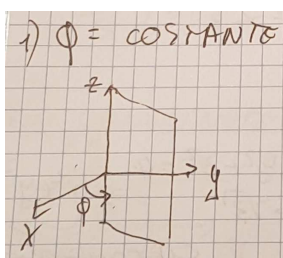 1) φ = COSTANTE
z
y
φ
X